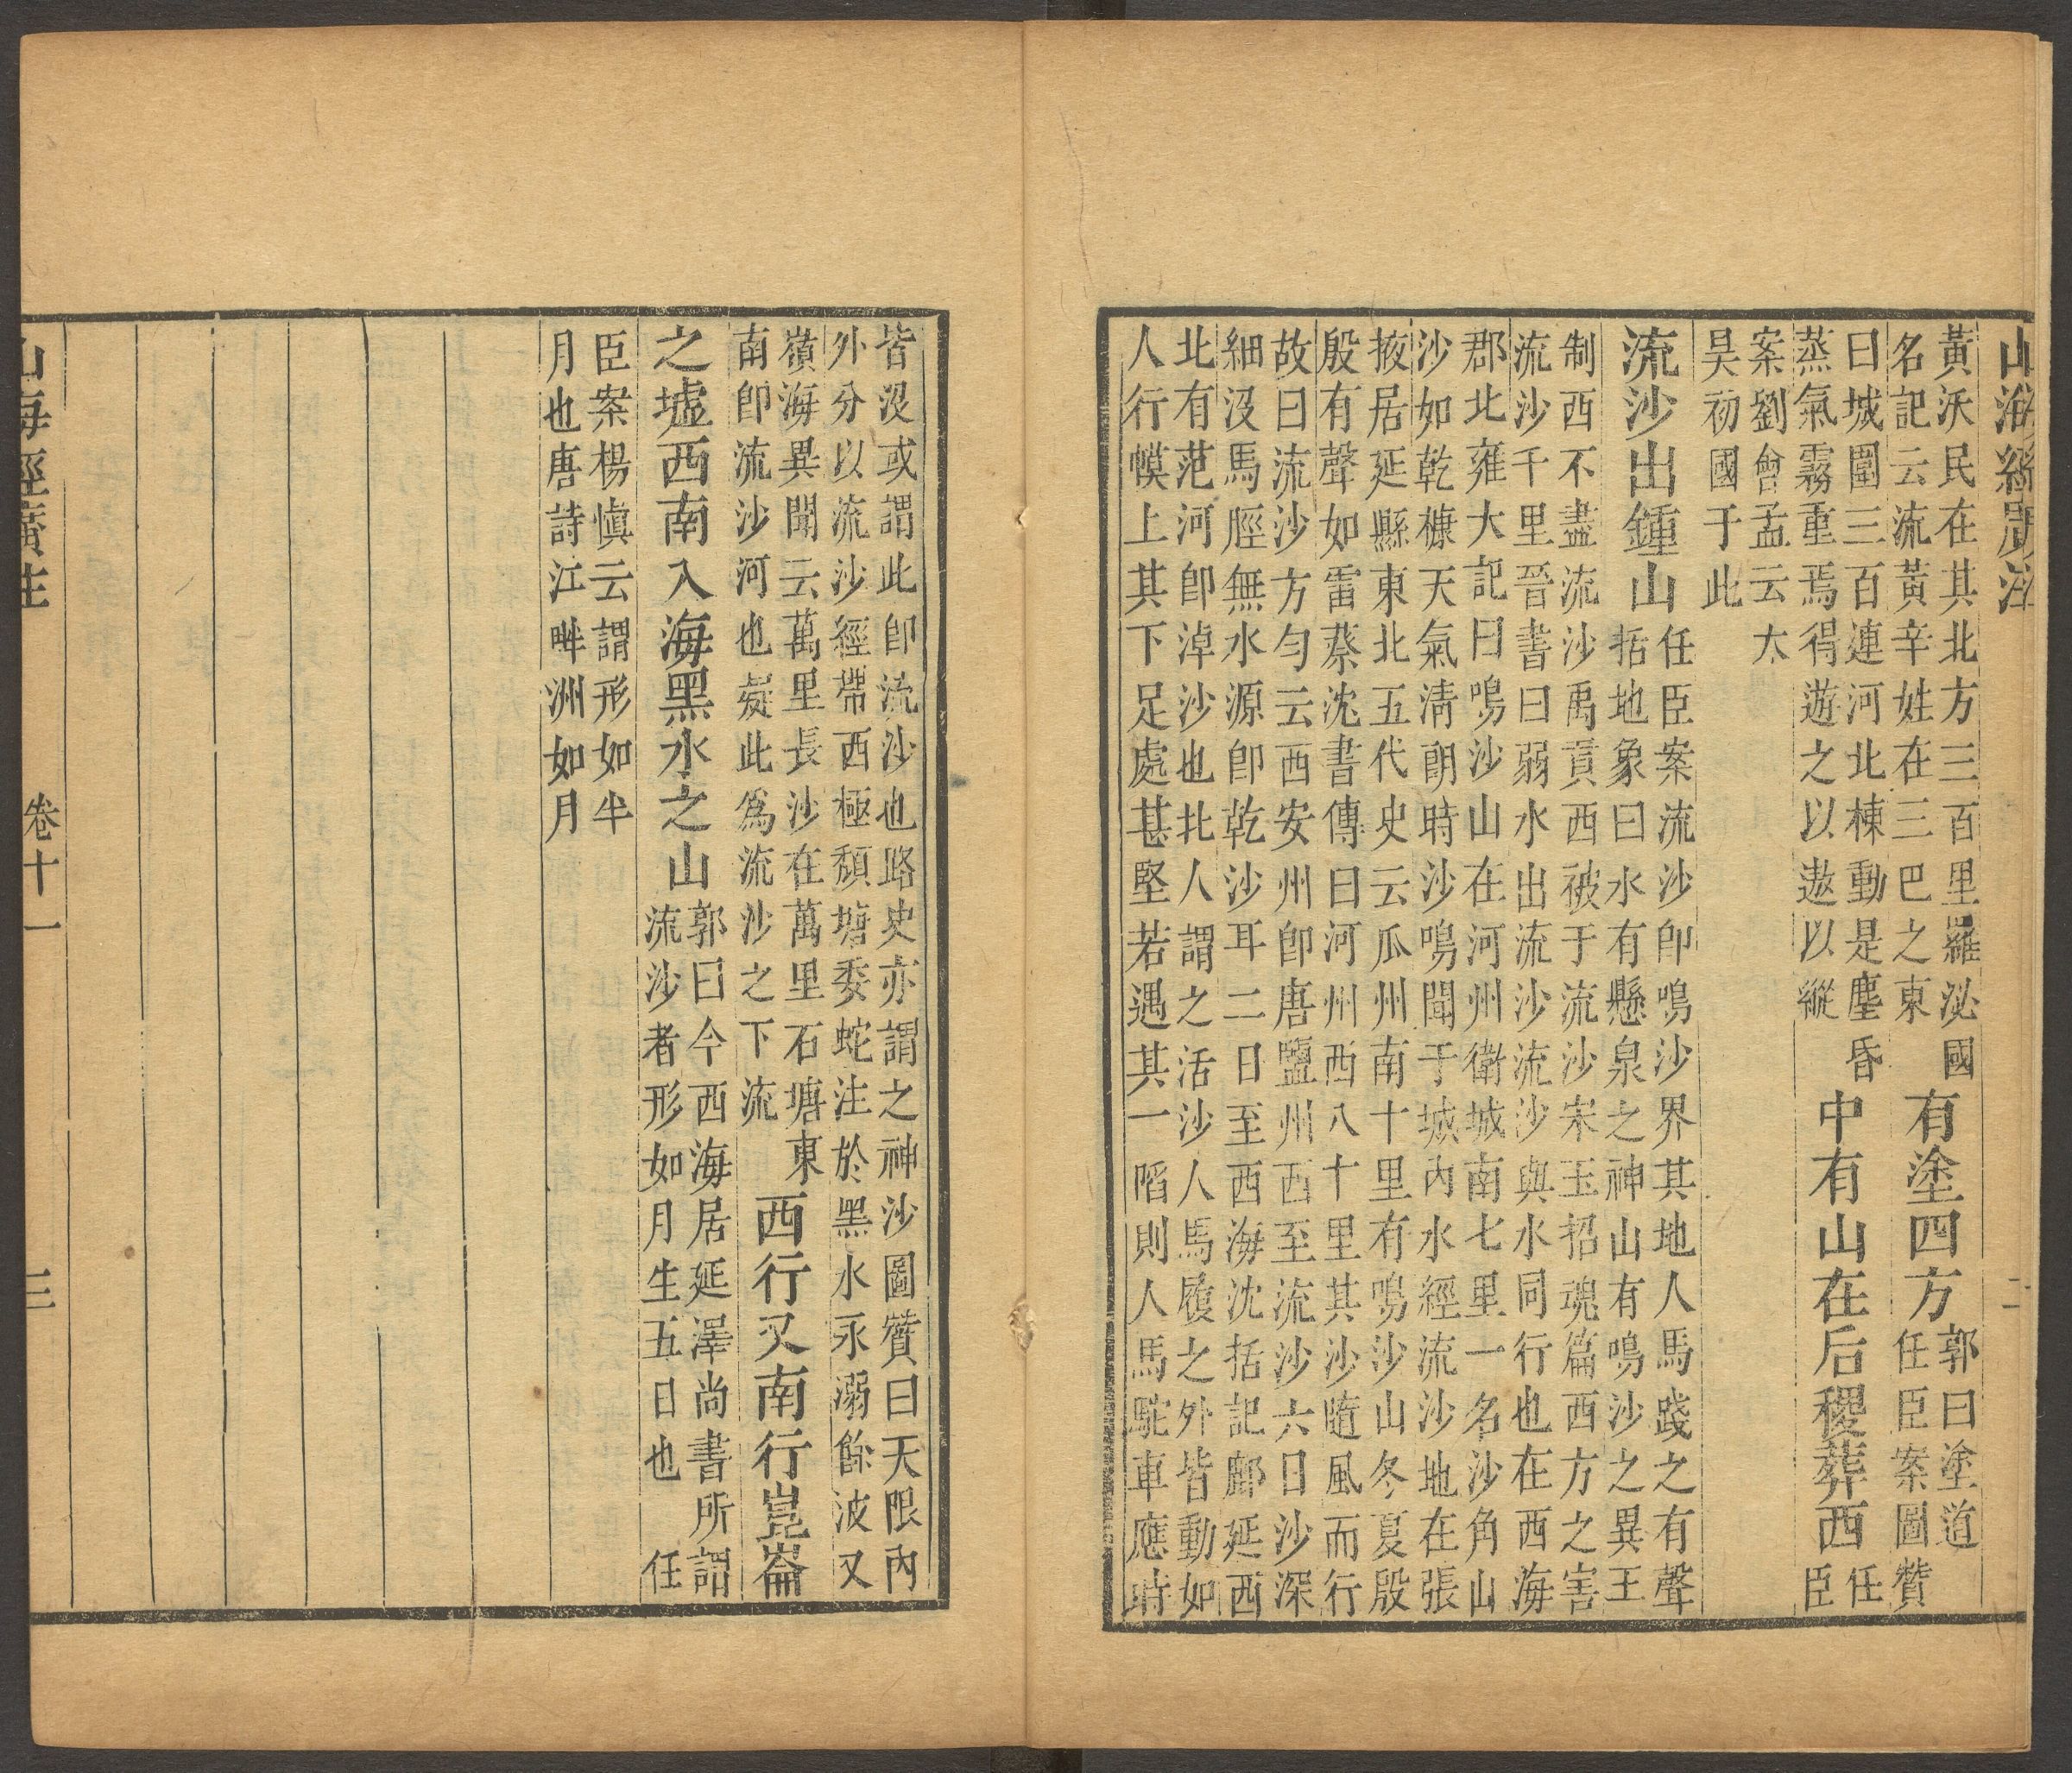 山海經廣注
二
黃沃民在其北方三百里羅泌國
名記云流黃辛姓在三巴之東
有塗四方
郭曰塗道
任臣案圖贊
曰城圍三百連河北棟動是塵昏
蒸氣霧重焉得遊之以遨以縱
中有山在后稷葬西
任
臣
案劉會孟云太
昊初國于此
流沙出鍾山
任臣案流沙卽鳴沙界其地人馬踐之有聲
括地象曰水有懸泉之神山有鳴沙之異王
制西不盡流沙禹貢西被于流沙宋玉招魂篇西方之害
流沙千里晉書曰弱水出流沙流沙與水同行也在西海
郡北雍大記曰鳴沙山在河州衛城南七里一名沙角山
沙如乾糠天氣清朗時沙鳴聞于城內水經流沙地在張
掖居延縣東北五代史云瓜州南十里有鳴沙山冬夏殷
殷有聲如雷蔡沈書傳曰河州西八十里其沙隨風而行
故曰流沙方勻云西安州卽唐鹽州西至流沙六日沙深
細沒馬脛無水源卽乾沙耳二日至西海沈括記鄜延西
北有范河卽淖沙也北人謂之活沙人馬履之外皆動如
人行幙上其下足處甚堅若遇其一陷則人馬駝車應時
皆沒或謂此卽流沙也路史亦謂之神沙圖贊曰天限內
外分以流沙經帶西極頹塘委蛇注於黑水永溺餘波又
嶺海異聞云萬里長沙在萬里石塘東
南卽流沙河也疑此爲流沙之下流
西行又南行崑崙
之墟西南入海黑水之山
郭曰今西海居延澤尚書所謂
流沙者形如月生五日也 任
臣案楊愼云謂形如半
月也唐詩江畔洲如月
山海經廣注
卷十一
三